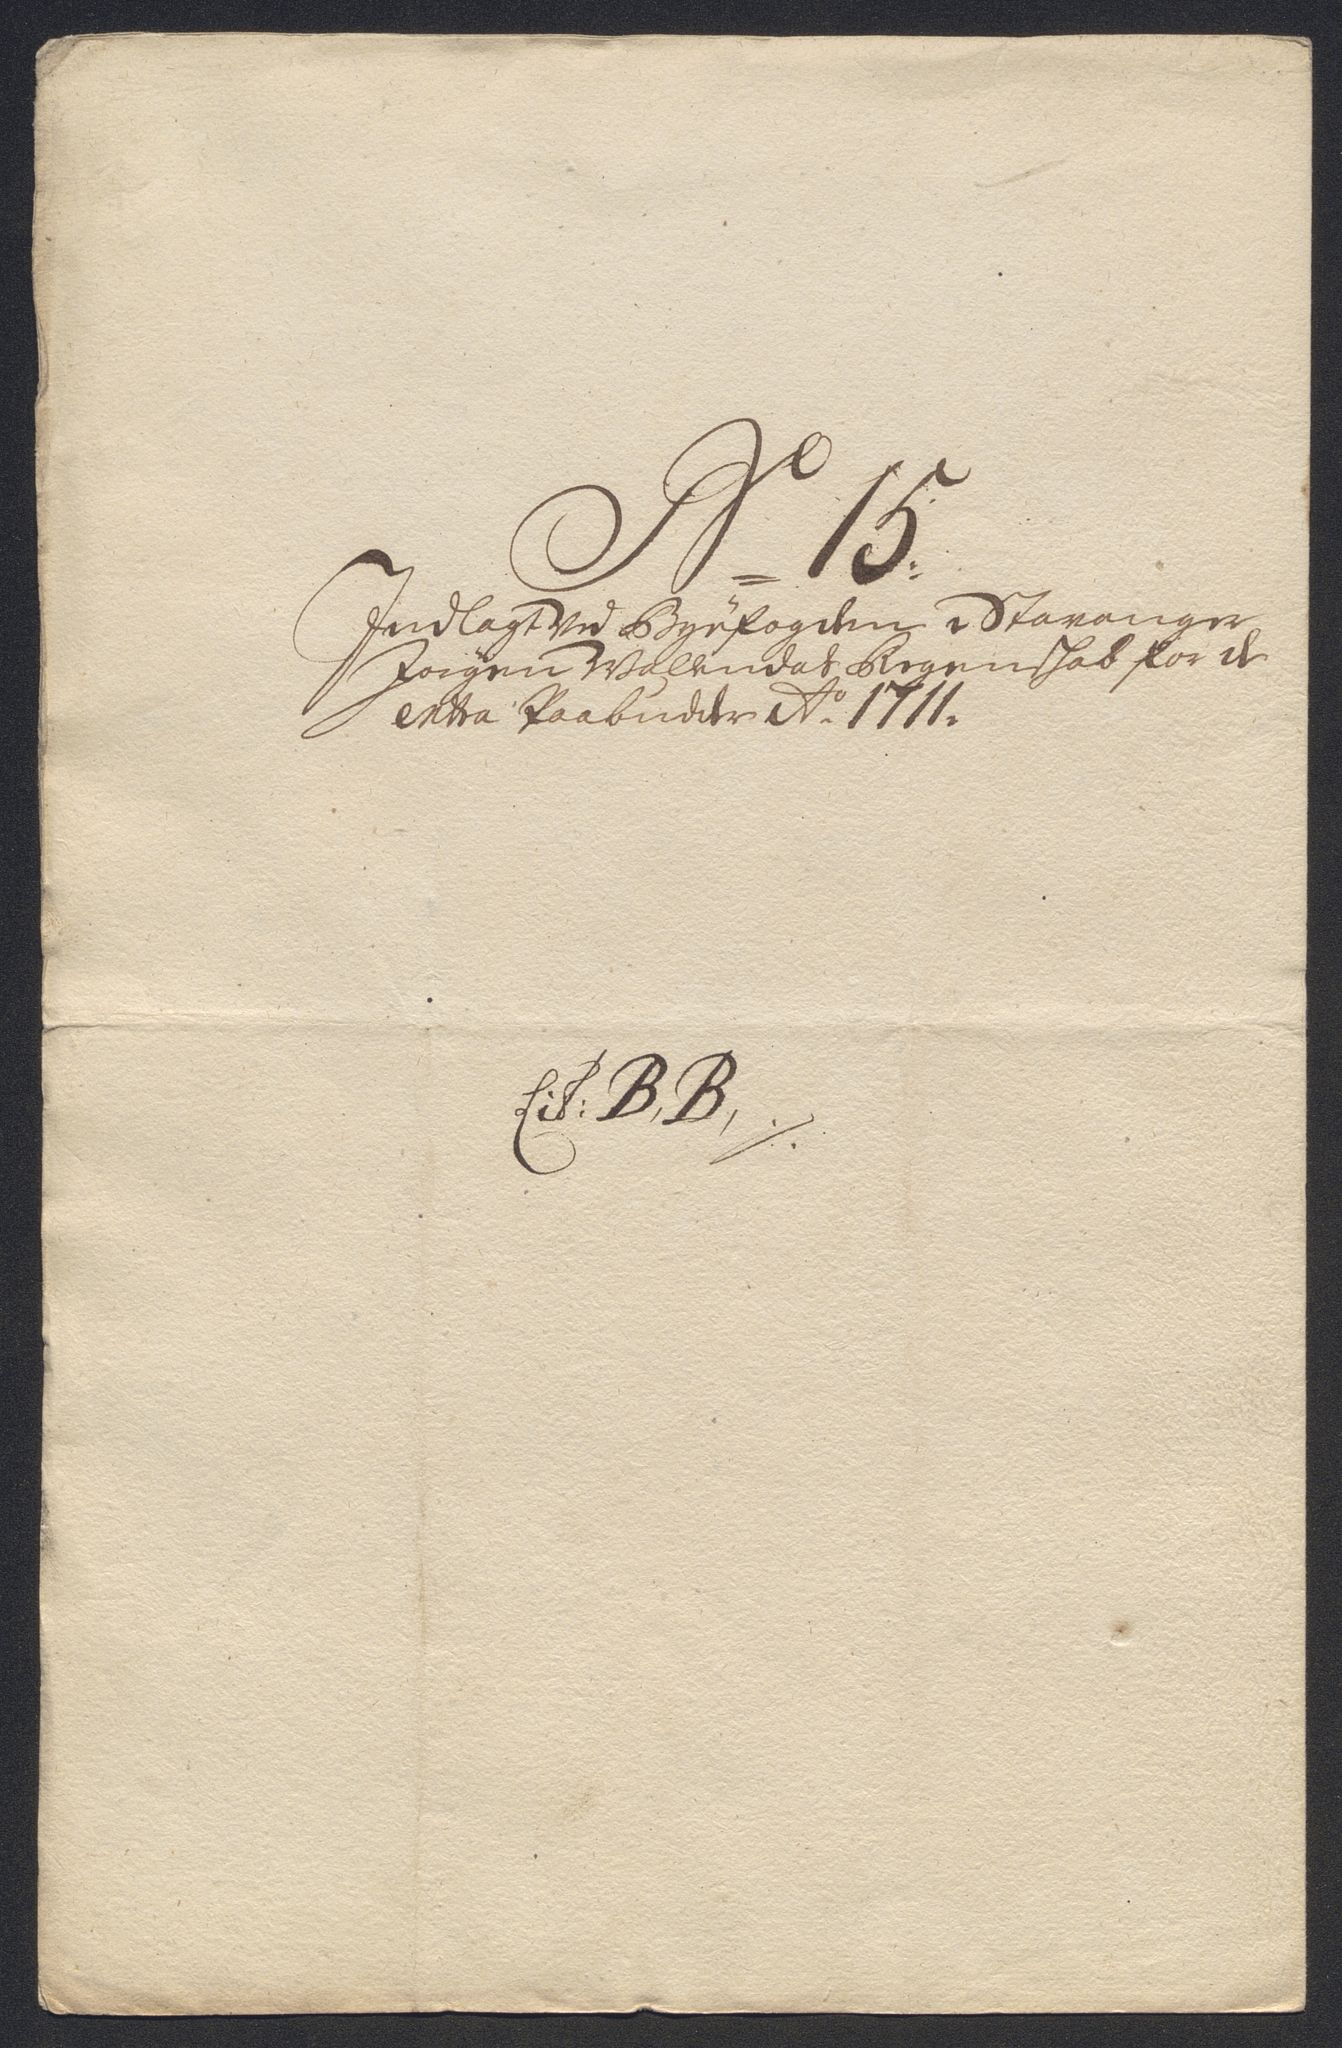 No 15:
Indlagt ved Byefogden i Stavanger
Jørgen Valendas Regenshab for de
extra Paabudder Ao. 1711.
Lit: B, B, ./.